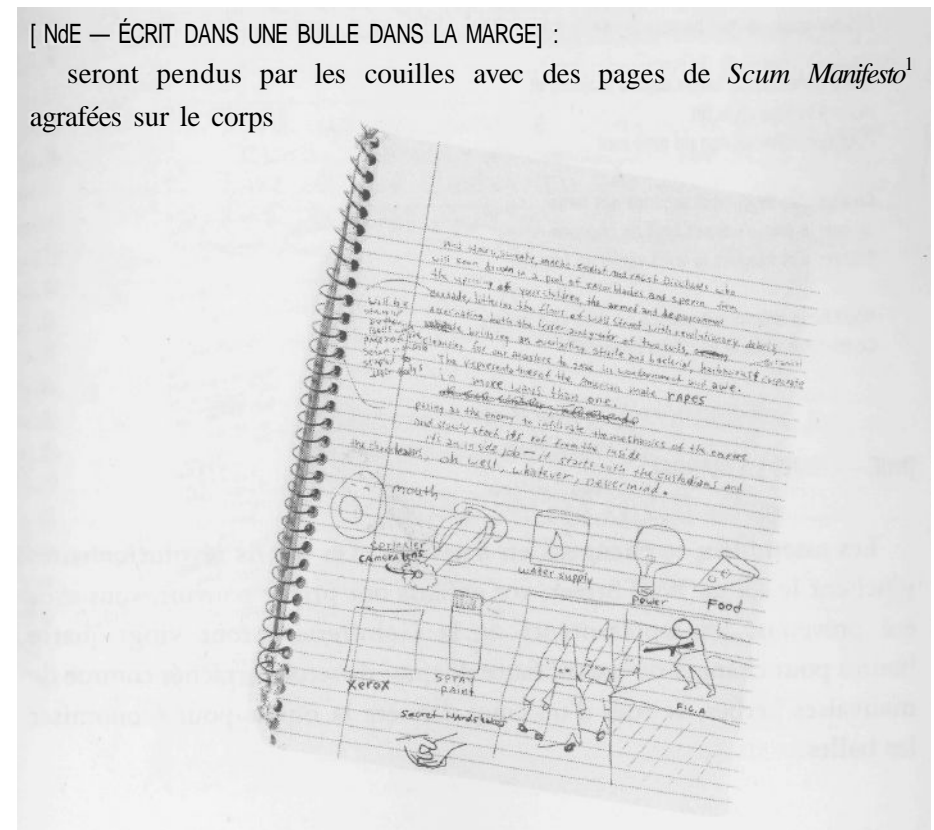 [ NdE — ÉCRIT DANS UNE BULLE DANS LA MARGE] :
seront pendus par les couilles avec des pages de Scum Manifesto1
agrafées sur le corps
and
will soon drown in a pool of razorblades and sperm from
the uprising of your children, the armed and deprogrammed
crusade, littering the floors of Wall Street with revolutionary debris,
assassinating both the lesser and greater of two evils,
bringing an everlasting sterile and bacterial
for our ancestors to gaze in wonderment and awe.
The representatives of the American male RAPES
in more ways than one.
posing as the enemy to infiltrate the mechanics of the empire
and slowly start its rot from the inside
its an inside job — it starts with the custodians and
the cheerleaders. oh well, whatever, nevermind.
will be
mouth
camera lens
water supply
power
Food
Xerox
SPRAY
PAINT
Secret Handshake
FIG. A